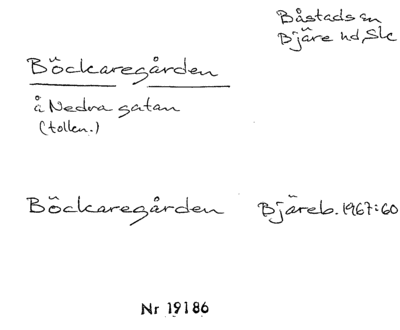 Båstads sn
Bjäre hd, Sk
Böckaregården
å Nedra gatan
(tolkn.)
Böckaregården Bjäreb. 1967:60
Nr 19186